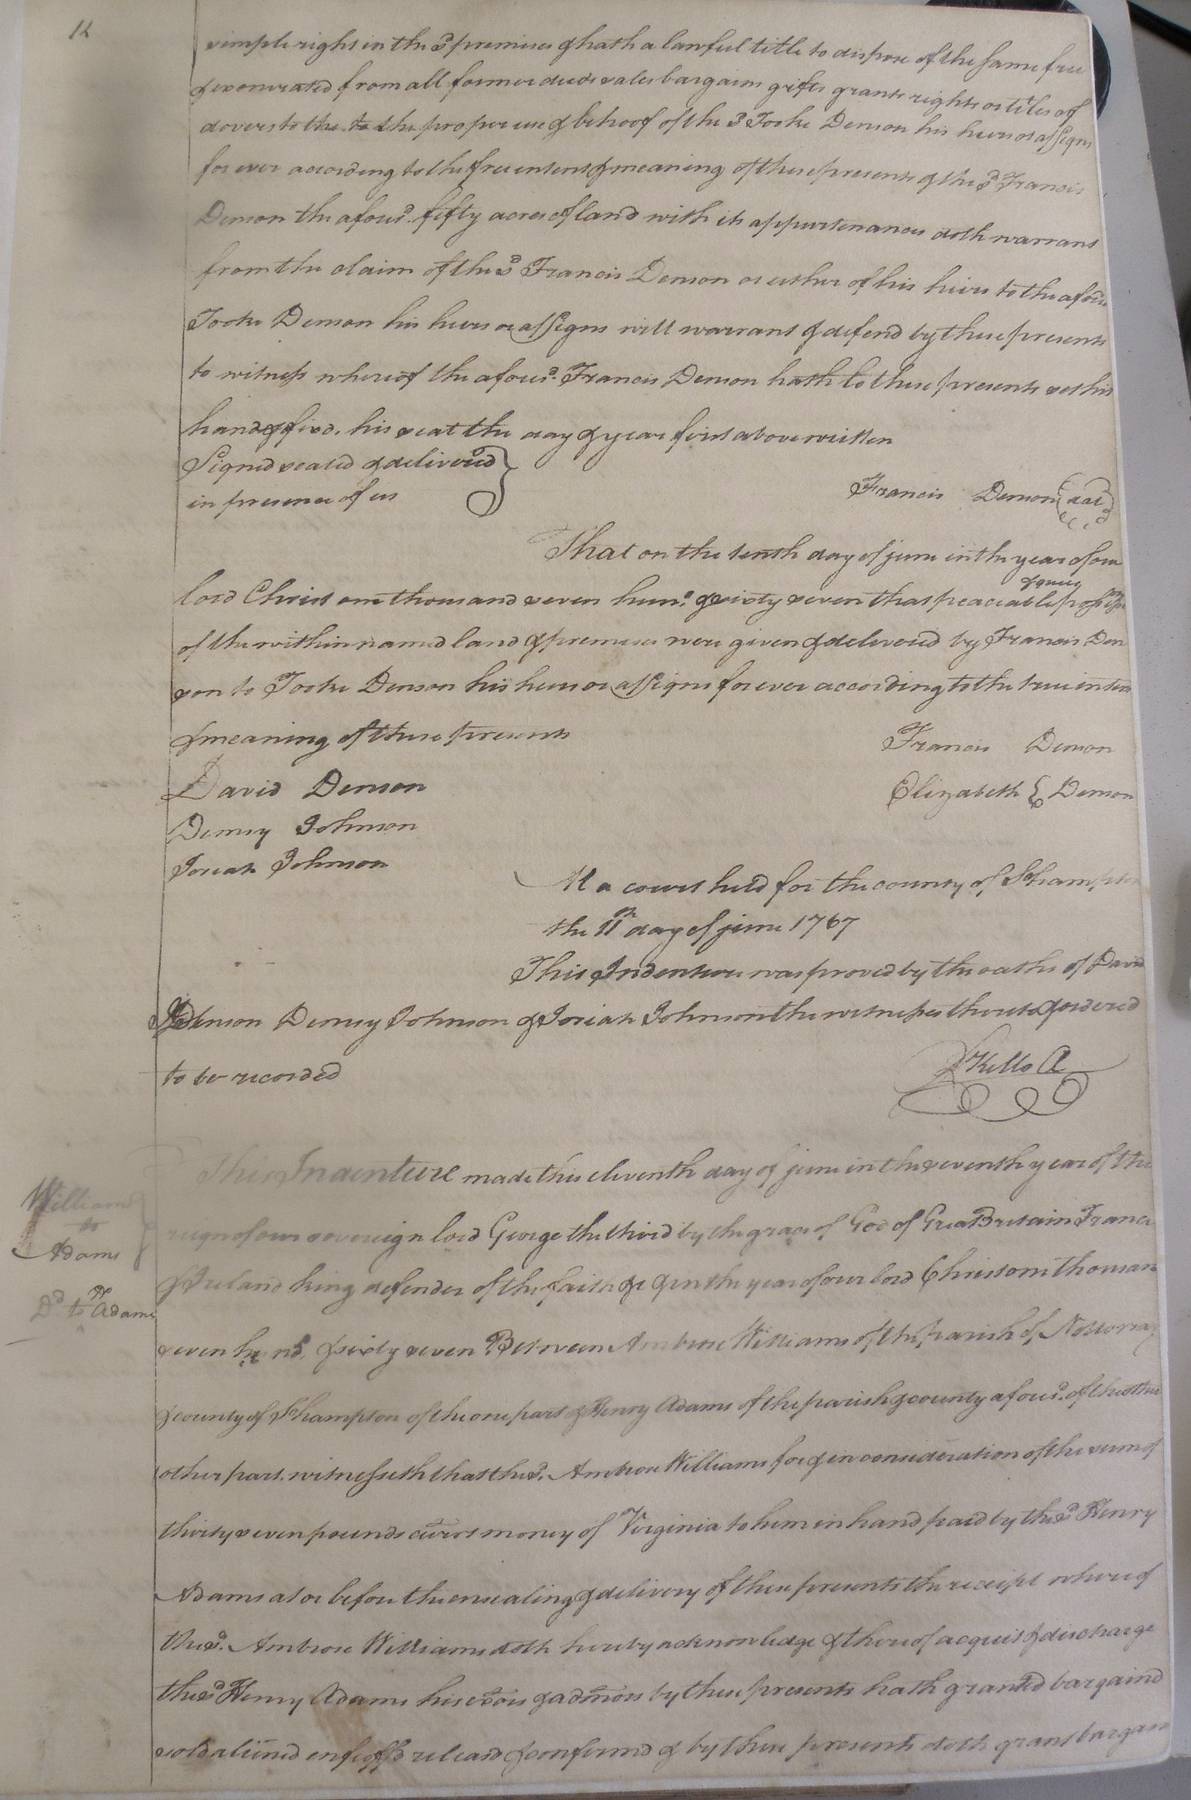 12
simple right in the sd premises & hath a lawful title to dispose of the same free
& exonerated from all former deeds sales bargains gifts grants rights or titles of
dovers to the to the proper use & behoof of the sd Tooke Denson his heirs or assigns
for ever according to the true intent & meaning of these presents & the sd Francis
Denson the aforesd. fifty acres of land with its appurtenances doth warrant
from the claim of the sd Francis Denson or either of his heirs to the aforesd
Tooke Denson his heirs or assigns will warrant & defend by these presents
to witness whereof the aforesd. Francis Denson hath to these presents set his
hand & fixd. his seal the day & year first above written
Signed sealed & delivered
in presence of us
Francis Denson seal
That on the tenth day of june in the year of our
lord Christ one thousand seven hund. & sixty seven that peaceable & quiet possession
of the within named land & premises were given & delivered by Francis Den
son to Tooke Denson his heirs or assigns for ever according to the true intent
& meaning of these presents
Francis Denson
David Denson
Elizabeth Denson
Demsy Johnson
Josiah Johnson
At a court held for the county of Sohampton
the 11th day of june 1767
This Indenture was proved by the oaths of David
Denson Demsy Johnson & Josiah Johnson the witnesses thereto & ordered
to be recorded
Kello
This Indenture made this eleventh day of june in the seventh year of the
Williams
to
Adams
reign of our sovereign lord George the third by the grace of God of Grea Britain France
& Ireland king defender of the faith &c & in the year of our lord Christ one thousan
Dd to Adams
seven hund. & sixty seven Between Ambrose Williams of the parish of Nottoway
& county of Sohampton of the one part & Henry Adams of the parish & county aforesd. of the other
other part. witnesseth that the sd. Ambrose Williams for & in consideration of the sum of
thirty seven pounds current money of Virginia to him in hand paid by the sd Henry
Adams at or before the ensealing & delivery of these presents the receipt whereof
the sd. Ambrose Williams doth hereby acknowledge & thereof acquit & discharge
the sd Henry Adams his exōrs & adm̄ors by these presents hath granted bargaind
sold aliened enfeoff'd releasd & confirmd & by these presents doth grant bargain